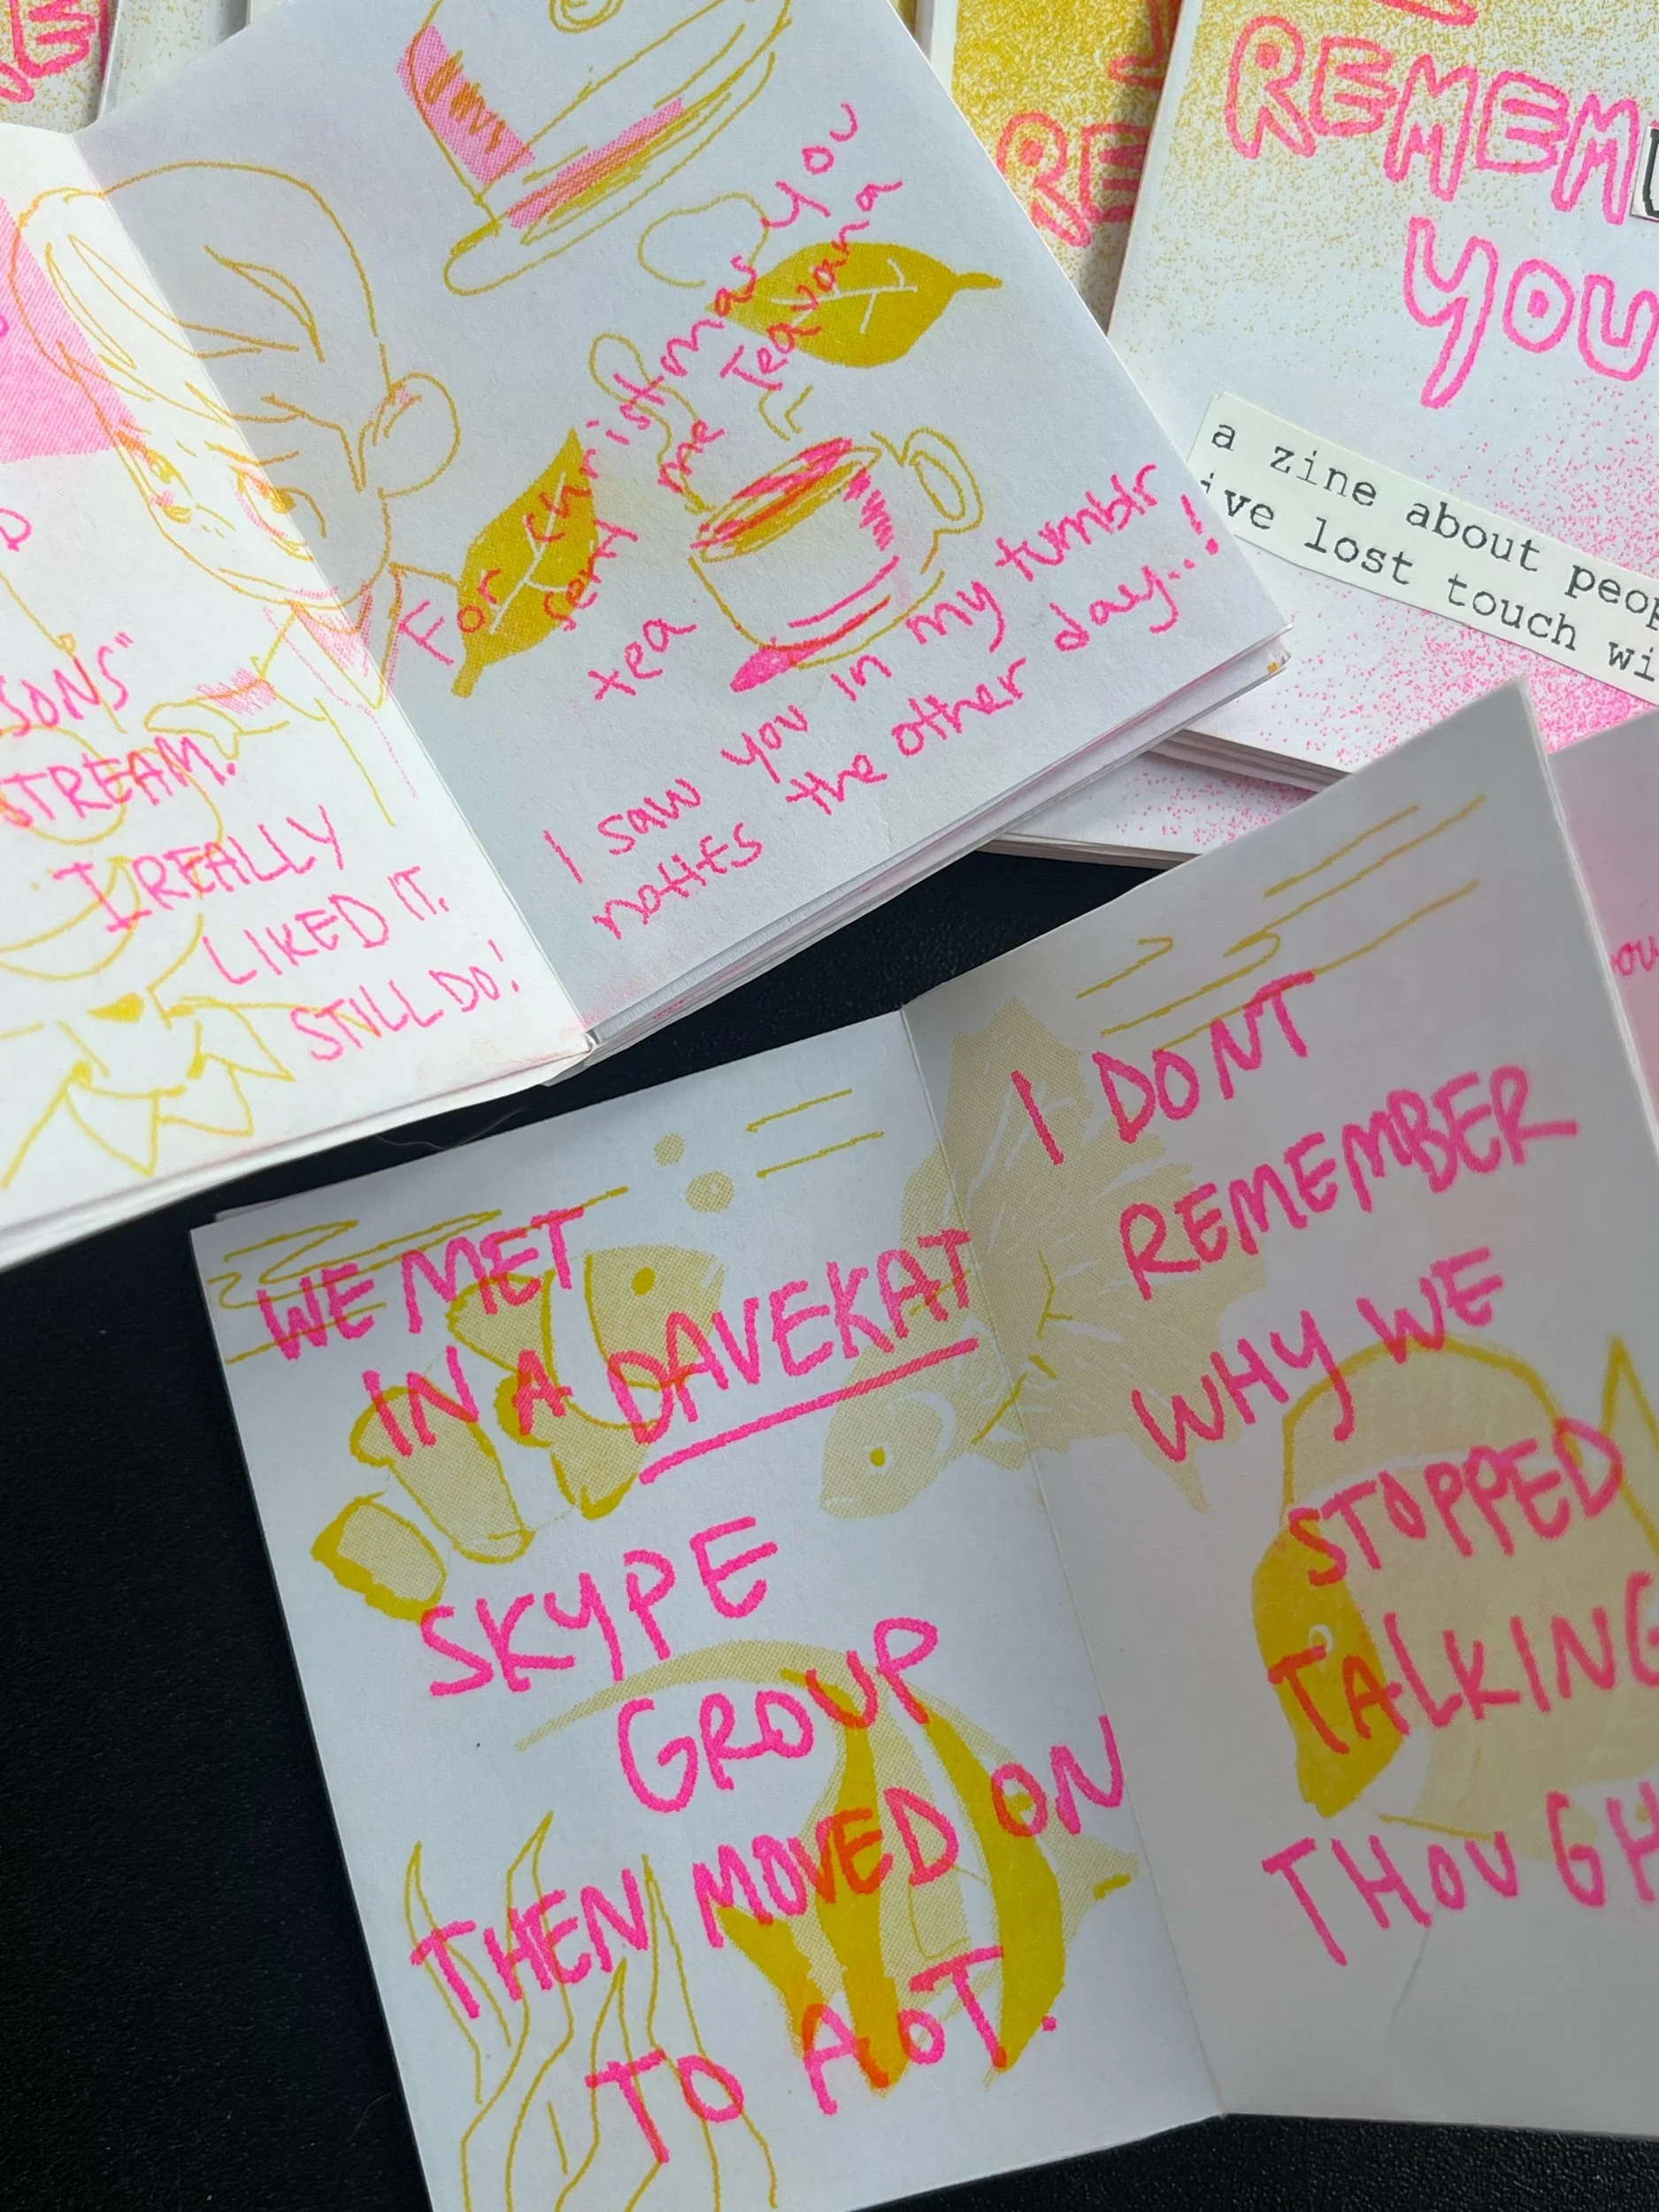 REMEM
YOU
a zine about
ive lost touch
RE
SONS"
STREAM.
I REALLY
LIKED IT.
STILL DO!
For christmas you
sent me Teavana
tea.
I saw you in my tumblr
notifs the other day..!
WE MET
IN A DAVEKAT
SKYPE
GROUP
THEN MOVED ON
TO AOT.
I DONT
REMEMBER
WHY WE
STOPPED
TALKING
THOUGH